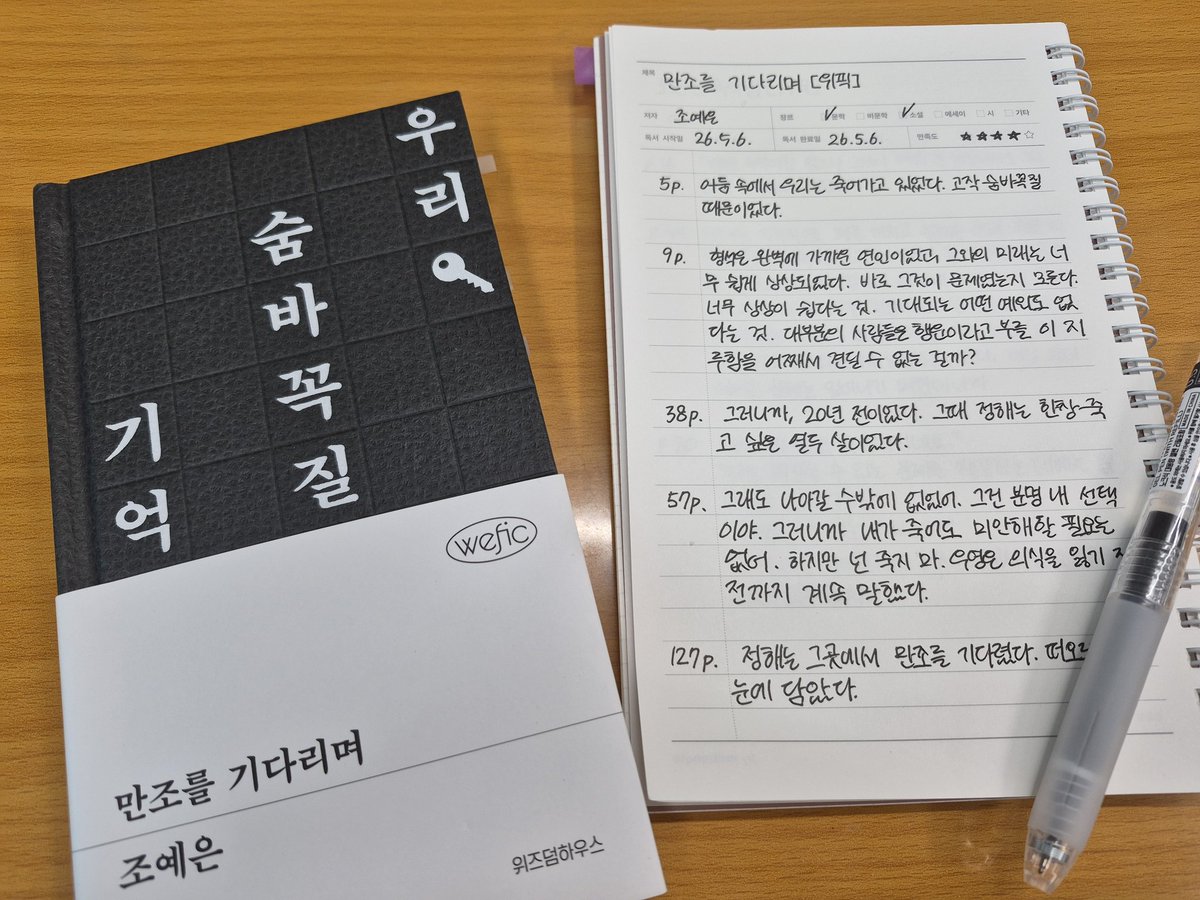 우리
숨바꼭질
기억
wefic
만조를 기다리며
조예은
위즈덤하우스
제목 만조를 기다리며 [위픽]
저자 조예은 장르 문학 비문학 소설 에세이 시 기타
독서 시작일 26.5.6. 독서 완료일 26.5.6. 만족도 ★★★★☆
5p. 어둠 속에서 우리는 죽어가고 있었다. 고작 숨바꼭질
때문이었다.
9p. 형석은 완벽에 가까운 연인이었고, 그와의 미래는 너
무 쉽게 상상되었다. 바로 그것이 문제였는지 모른다.
너무 상상이 쉽다는 것. 기대되는 어떤 예외도 없
다는 것. 대부분의 사람들은 행운이라고 부를 이 지
루함을 어째서 견딜 수 없는 걸까?
38p. 그러니까, 20년 전이었다. 그때 정해는 한창 죽
고 싶은 열두 살이었다.
57p. 그래도 나아갈 수밖에 없었어. 그건 분명 내 선택
이야. 그러니까 내가 죽어도 미안해할 필요는
없어. 하지만 넌 죽지 마. 우영은 의식을 잃기 직
전까지 계속 말했다.
127p. 정해는 그곳에서 만조를 기다렸다.
눈에 담았다.